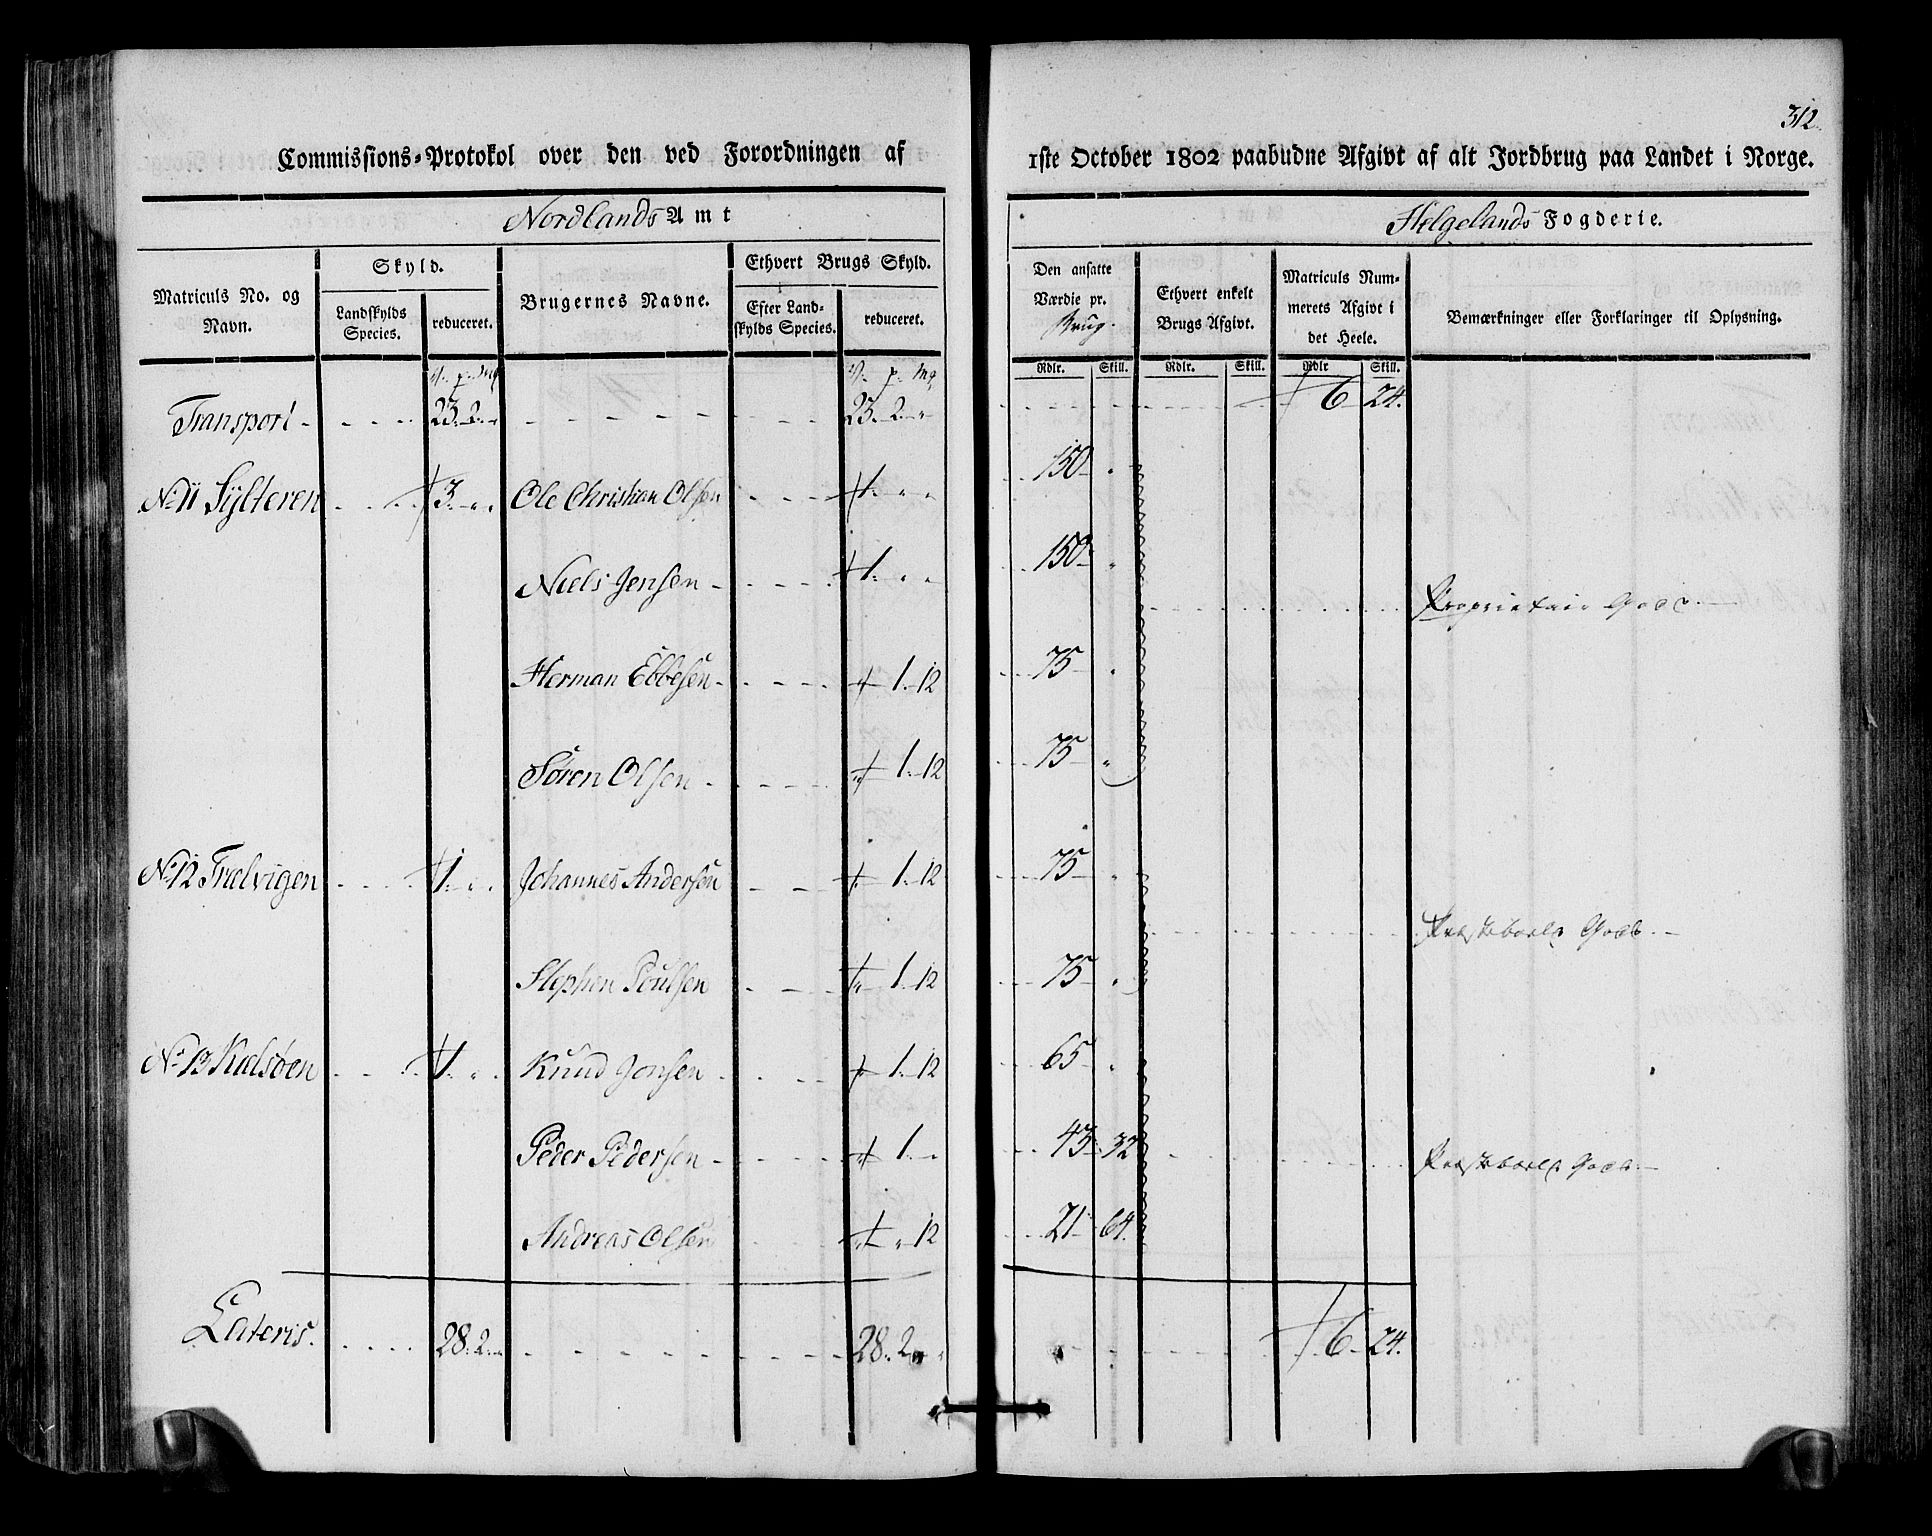 312.
Commissions-Protokol over den ved Forordningen af 1ste October 1802 paabudne Afgivt af alt Jordbrug paa Landet i Norge.
Nordlands Amt Helgelands Fogderie.
Matriculs No. og Navn.
Skyld.
Landskylds Species.
reduceret.
Brugernes Navne.
Ethvert Brugs Skyld.
Efter Landskylds Species.
reduceret.
Den ansatte Værdie pr. Brug.
Ethvert enkelt Brugs Afgivt.
Matriculs Nummerets Afgivt i det Heele.
Bemærkninger eller Forklaringer til Oplysning.
V. p. Mq V. p. Mq Rdlr. Skill. Rdlr. Skill. Rdlr Skill.
Transport 23. 2. " 23. 2. " 6 24.
No 11 Sylteren 3. " " Ole Christian Olsen 1. " " 150 "
Niels Jensen 1. " " 150 "
Proprietair Gods.
Herman Ebbesen " 1. 12 75 "
Søren Olsen " 1. 12 75 "
No 12 Trælvigen 1. " " Johannes Andersen " 1. 12 75 "
Præsteboels Gods.
Stephen Poulsen " 1. 12 75 "
No 13 Kielsøen 1. " " Knud Jonsen " 1. 12 65 "
Peder Pedersen " 1. " 43 32
Præsteboels Gods.
Andreas Olsen " " 12 21 64.
Lateris. 28. 2. " 28. 2. " 6 24.